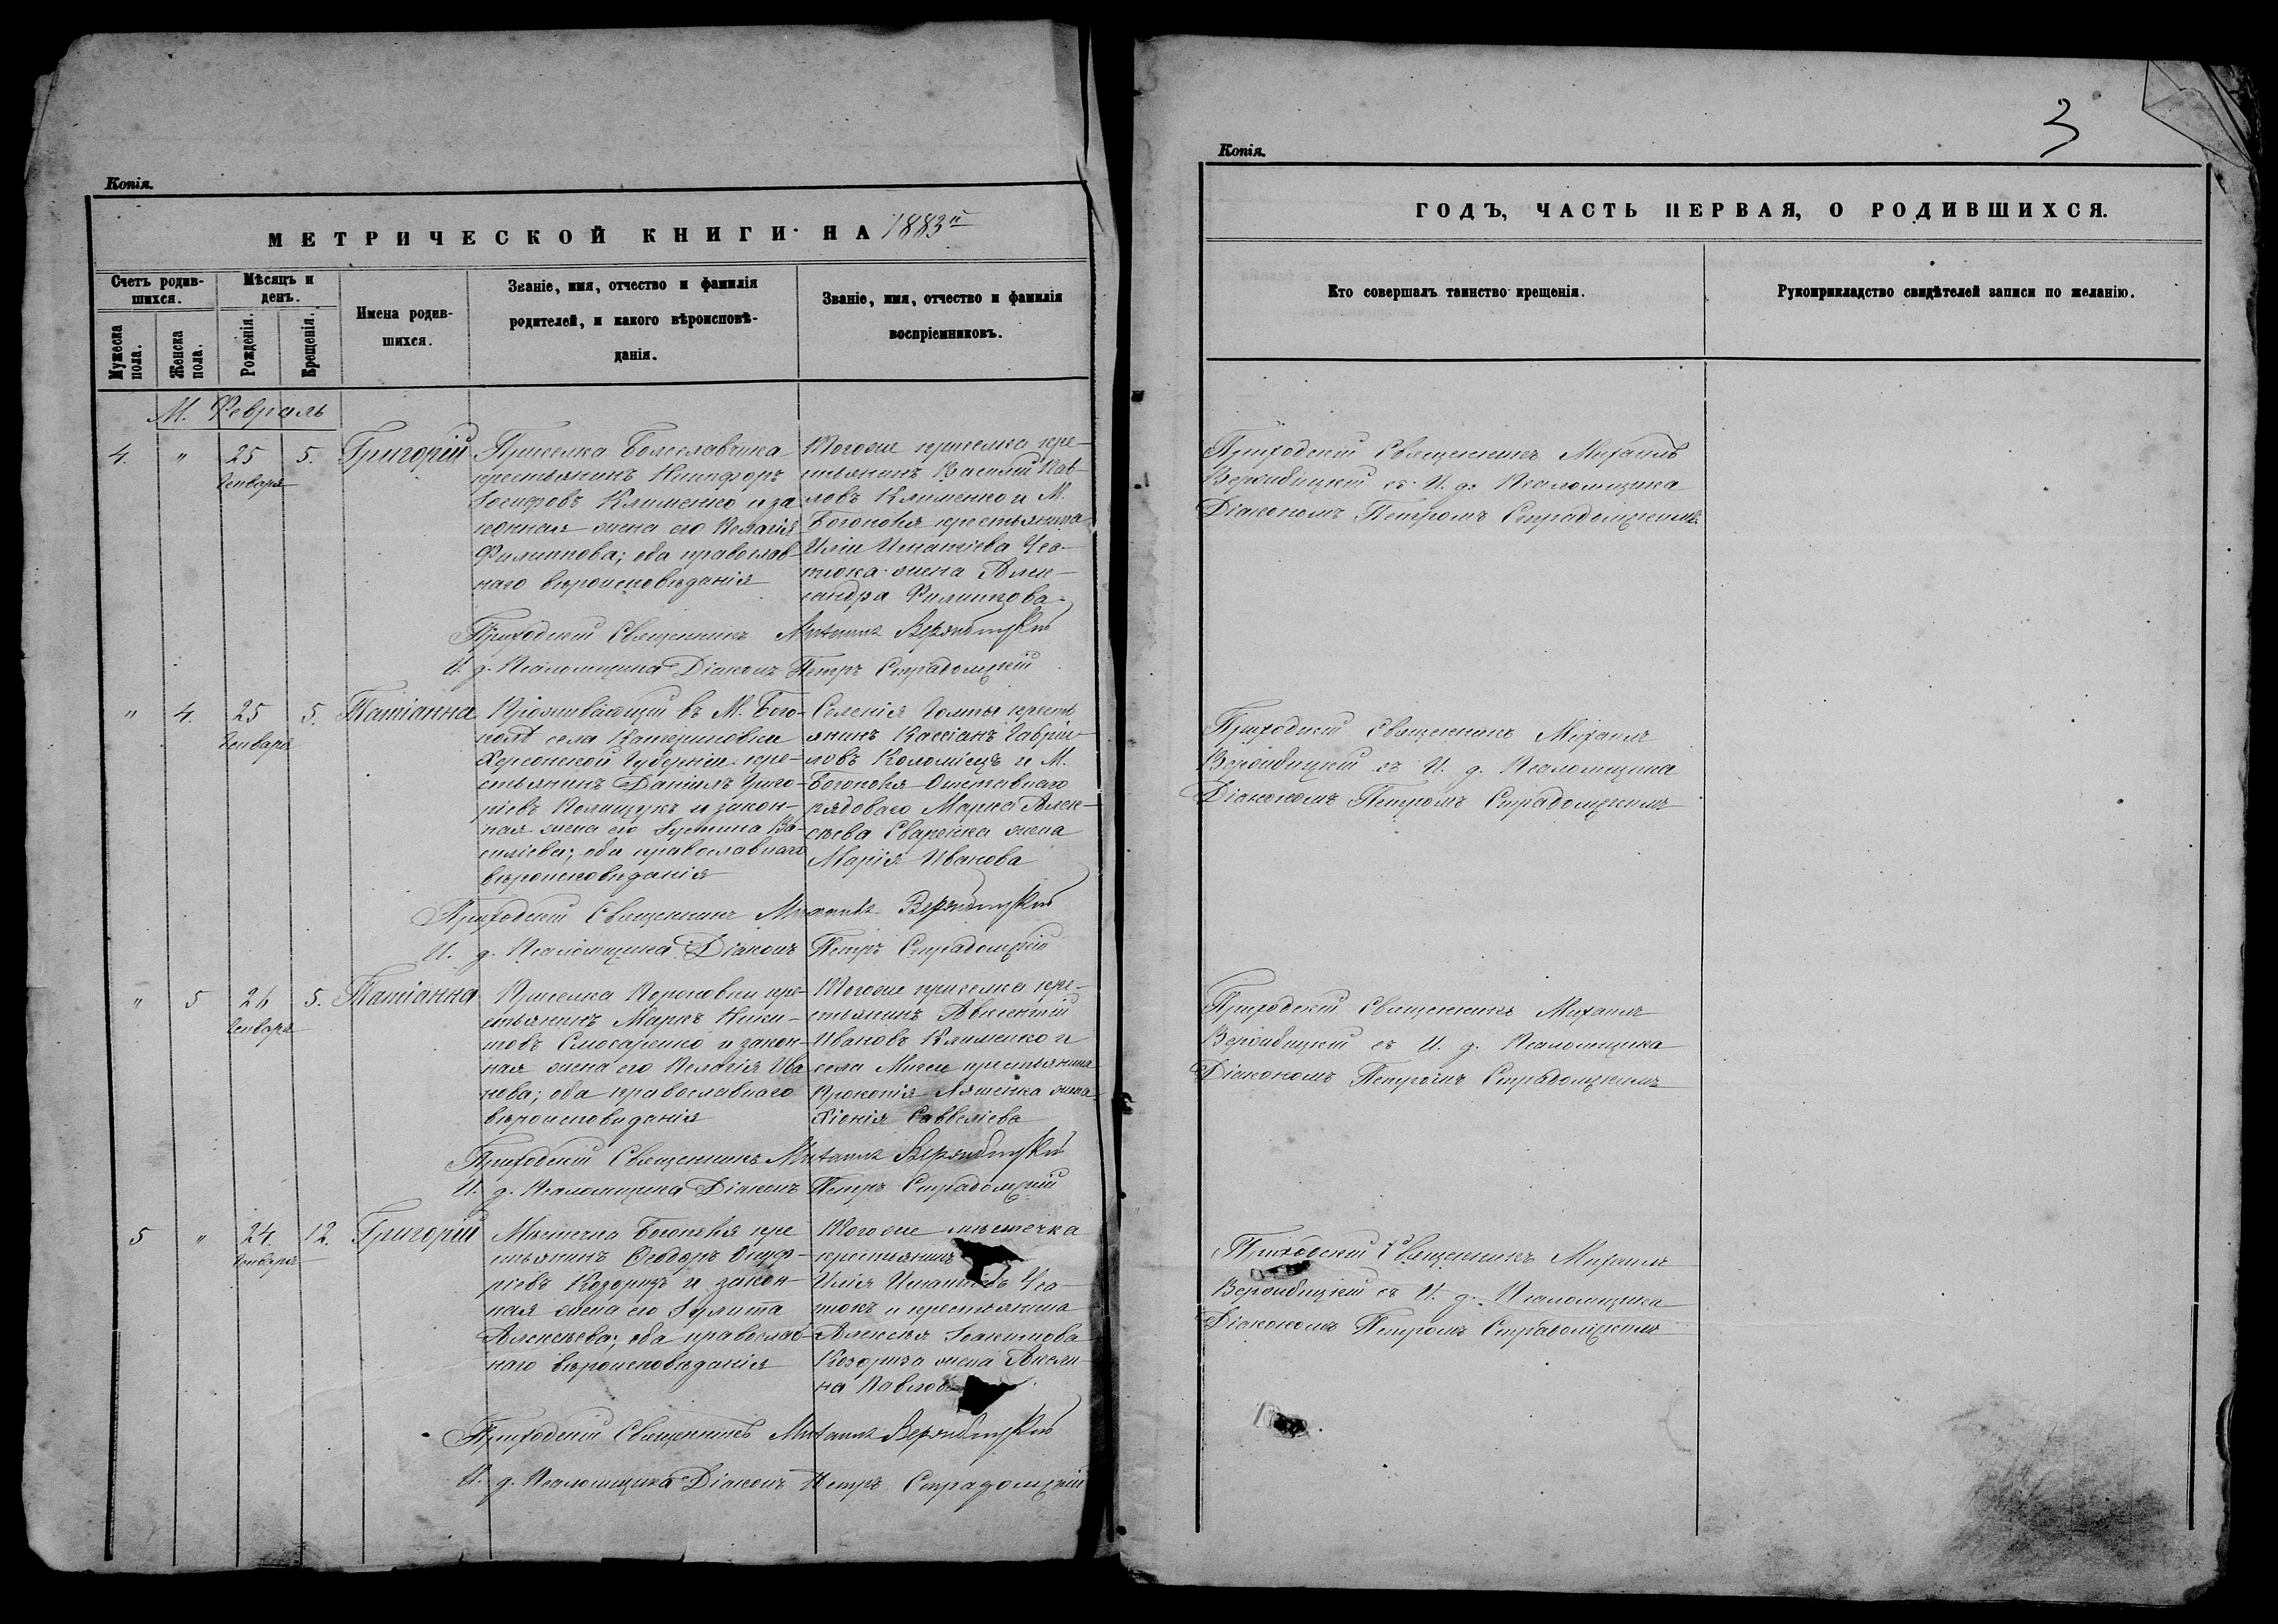 Копія.
МЕТРИЧЕСКОЙ КНИГИ НА 1883й
Счетъ родив-
шихся.
Мѣсяцъ и
день.
Имена родив-
шихся.
Званіе, имя, отчество и фамилія
родителей, и какого вѣроисповѣ-
данія.
Званіе, имя, отчество и фамилія
воспріемниковъ.
Мужеска
пола.
Женска
пола.
Рожденія.
Крещенія.
М. Февраль
4. " 25 Генваря 5. Григорій
Приселка Болеславчика
крестьянинъ Никифоръ
Іосифовъ Клименко и за-
конная жена его Пелагія
Филиппова; оба православ-
наго вѣроисповѣданія
Тогоже приселка кре-
стьянинъ Василій Пав-
ловъ Клименко и М.
Богополя крестьянина
Иліи Игнатіева
жена Алек-
сандра Филиппова.
Приходскій Священникъ Михаилъ Вержбицкій
И. д. Псаломщика Діаконъ Петръ Страдомскій
" 4. 25 Генваря 5. Татіанна
Проживающій въ М. Бого-
полѣ села Катериновки
Херсонской Губерніи кре-
стьянинъ Даніилъ Григо-
ріевъ Полищукъ и закон-
ная жена его Іустина Ва-
силіева; оба православнаго
вѣроисповѣданія
Селенія Голты кресть
янинъ Кассіанъ Гаврии-
ловъ Коломіецъ и М.
Богополя Отставнаго
рядоваго Марка Алек-
сѣева жена
Марія Иванова
Приходскій Священникъ Михаилъ Вержбицкій
И. д. Псаломщика Діаконъ Петръ Страдомскій
" 5 26 Генваря 5. Татіанна
Приселка кре-
стьянинъ Маркъ Ники-
товъ Слюсаренко и закон-
ная жена его Пелагія Ива
нова; оба православнаго
вѣроисповѣданія
Тогоже приселка кре-
стьянинъ Авксентій
Ивановъ Клименко и
села Мигеи крестьянина
Прокопія Ляшенка жена
Хіонія Савеліева
Приходскій Священникъ Михаилъ Вержбицкій
И. д. Псаломщика Діаконъ Петръ Страдомскій
5 " 24. Генваря 12. Григорій
Мѣстечка Богополя кре
стьянинъ Ѳеодоръ Онуф-
ріевъ Козоризъ и закон-
ная жена его Іулитта
Алексѣева; оба православ-
наго вѣроисповѣданія
Тогоже мѣстечка
крестьянинъ
Илія Игнатіевъ
и крестьянина
Алексѣя Іоакимова
Козориза жена Акели-
на Павлова
Приходскій Священникъ Михаилъ Вержбицкій
И. д. Псаломщика Діаконъ Петръ Страдомскій
3
Копія.
ГОДЪ, ЧАСТЬ ПЕРВАЯ, О РОДИВШИХСЯ.
Кто совершалъ таинство крещенія.
Рукоприкладство свидѣтелей записи по желанію.
Приходскій Священникъ Михаилъ
Вержбицкій съ И. д. Псаломщика
Діакономъ Петромъ Страдомскимъ
Приходскій Священникъ Михаилъ
Вержбицкій съ И. д. Псаломщика
Діакономъ Петромъ Страдомскимъ
Приходскій Священникъ Михаилъ
Вержбицкій съ И. д. Псаломщика
Діакономъ Петромъ Страдомскимъ
Приходскій Священникъ Михаилъ
Вержбицкій съ И. д. Псаломщика
Діакономъ Петромъ Страдомскимъ